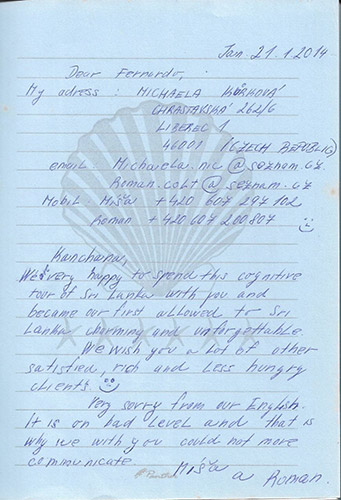 Jan. 21. 1. 2014
Dear Fernando,
My adress : MICHAELA KŮRKOVÁ
CHRASTAVSKÁ 262/6
LIBEREC 1
46001 (CZECH REPUBLIC)
email : Michaela.nic @ seznam.cz
Roman.colt @ seznam.cz
Mobil : Míša +420 607 297 102
Roman +420 607 200 807
Kanchana,
We very happy to spend this cognitive
tour of Sri Lanka with you and
became our first allowed to Sri
Lanka charming and unforgettable.
We wish you a lot of other
satisfied, rich and less hungry
clients.
Very sorry from our English.
It is on bad level and that is
why we with you could not more
communicate.
Míša
a Roman.